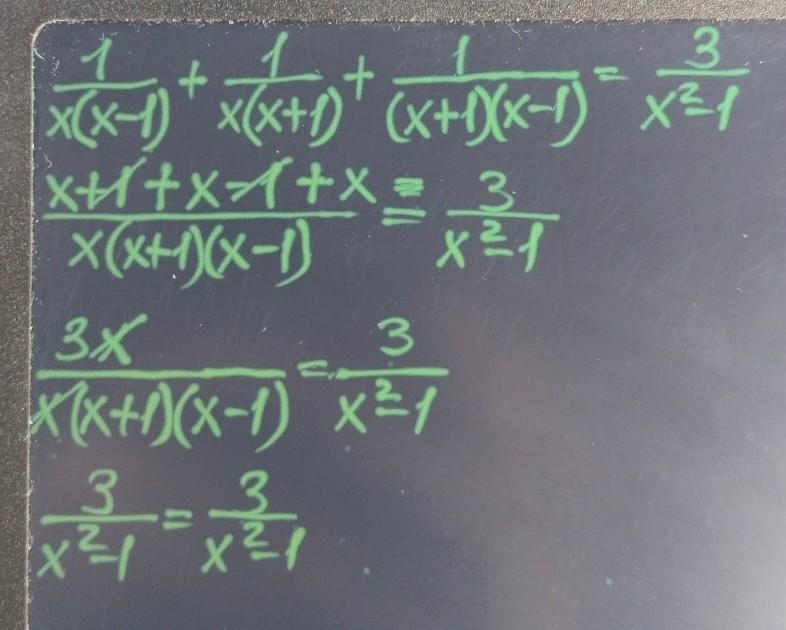 1/(x(x-1)) + 1/(x(x+1)) + 1/((x+1)(x-1)) = 3/(x²-1)
(x+1+x-1+x)/(x(x+1)(x-1)) = 3/(x²-1)
3x/(x(x+1)(x-1)) = 3/(x²-1)
3/(x²-1) = 3/(x²-1)